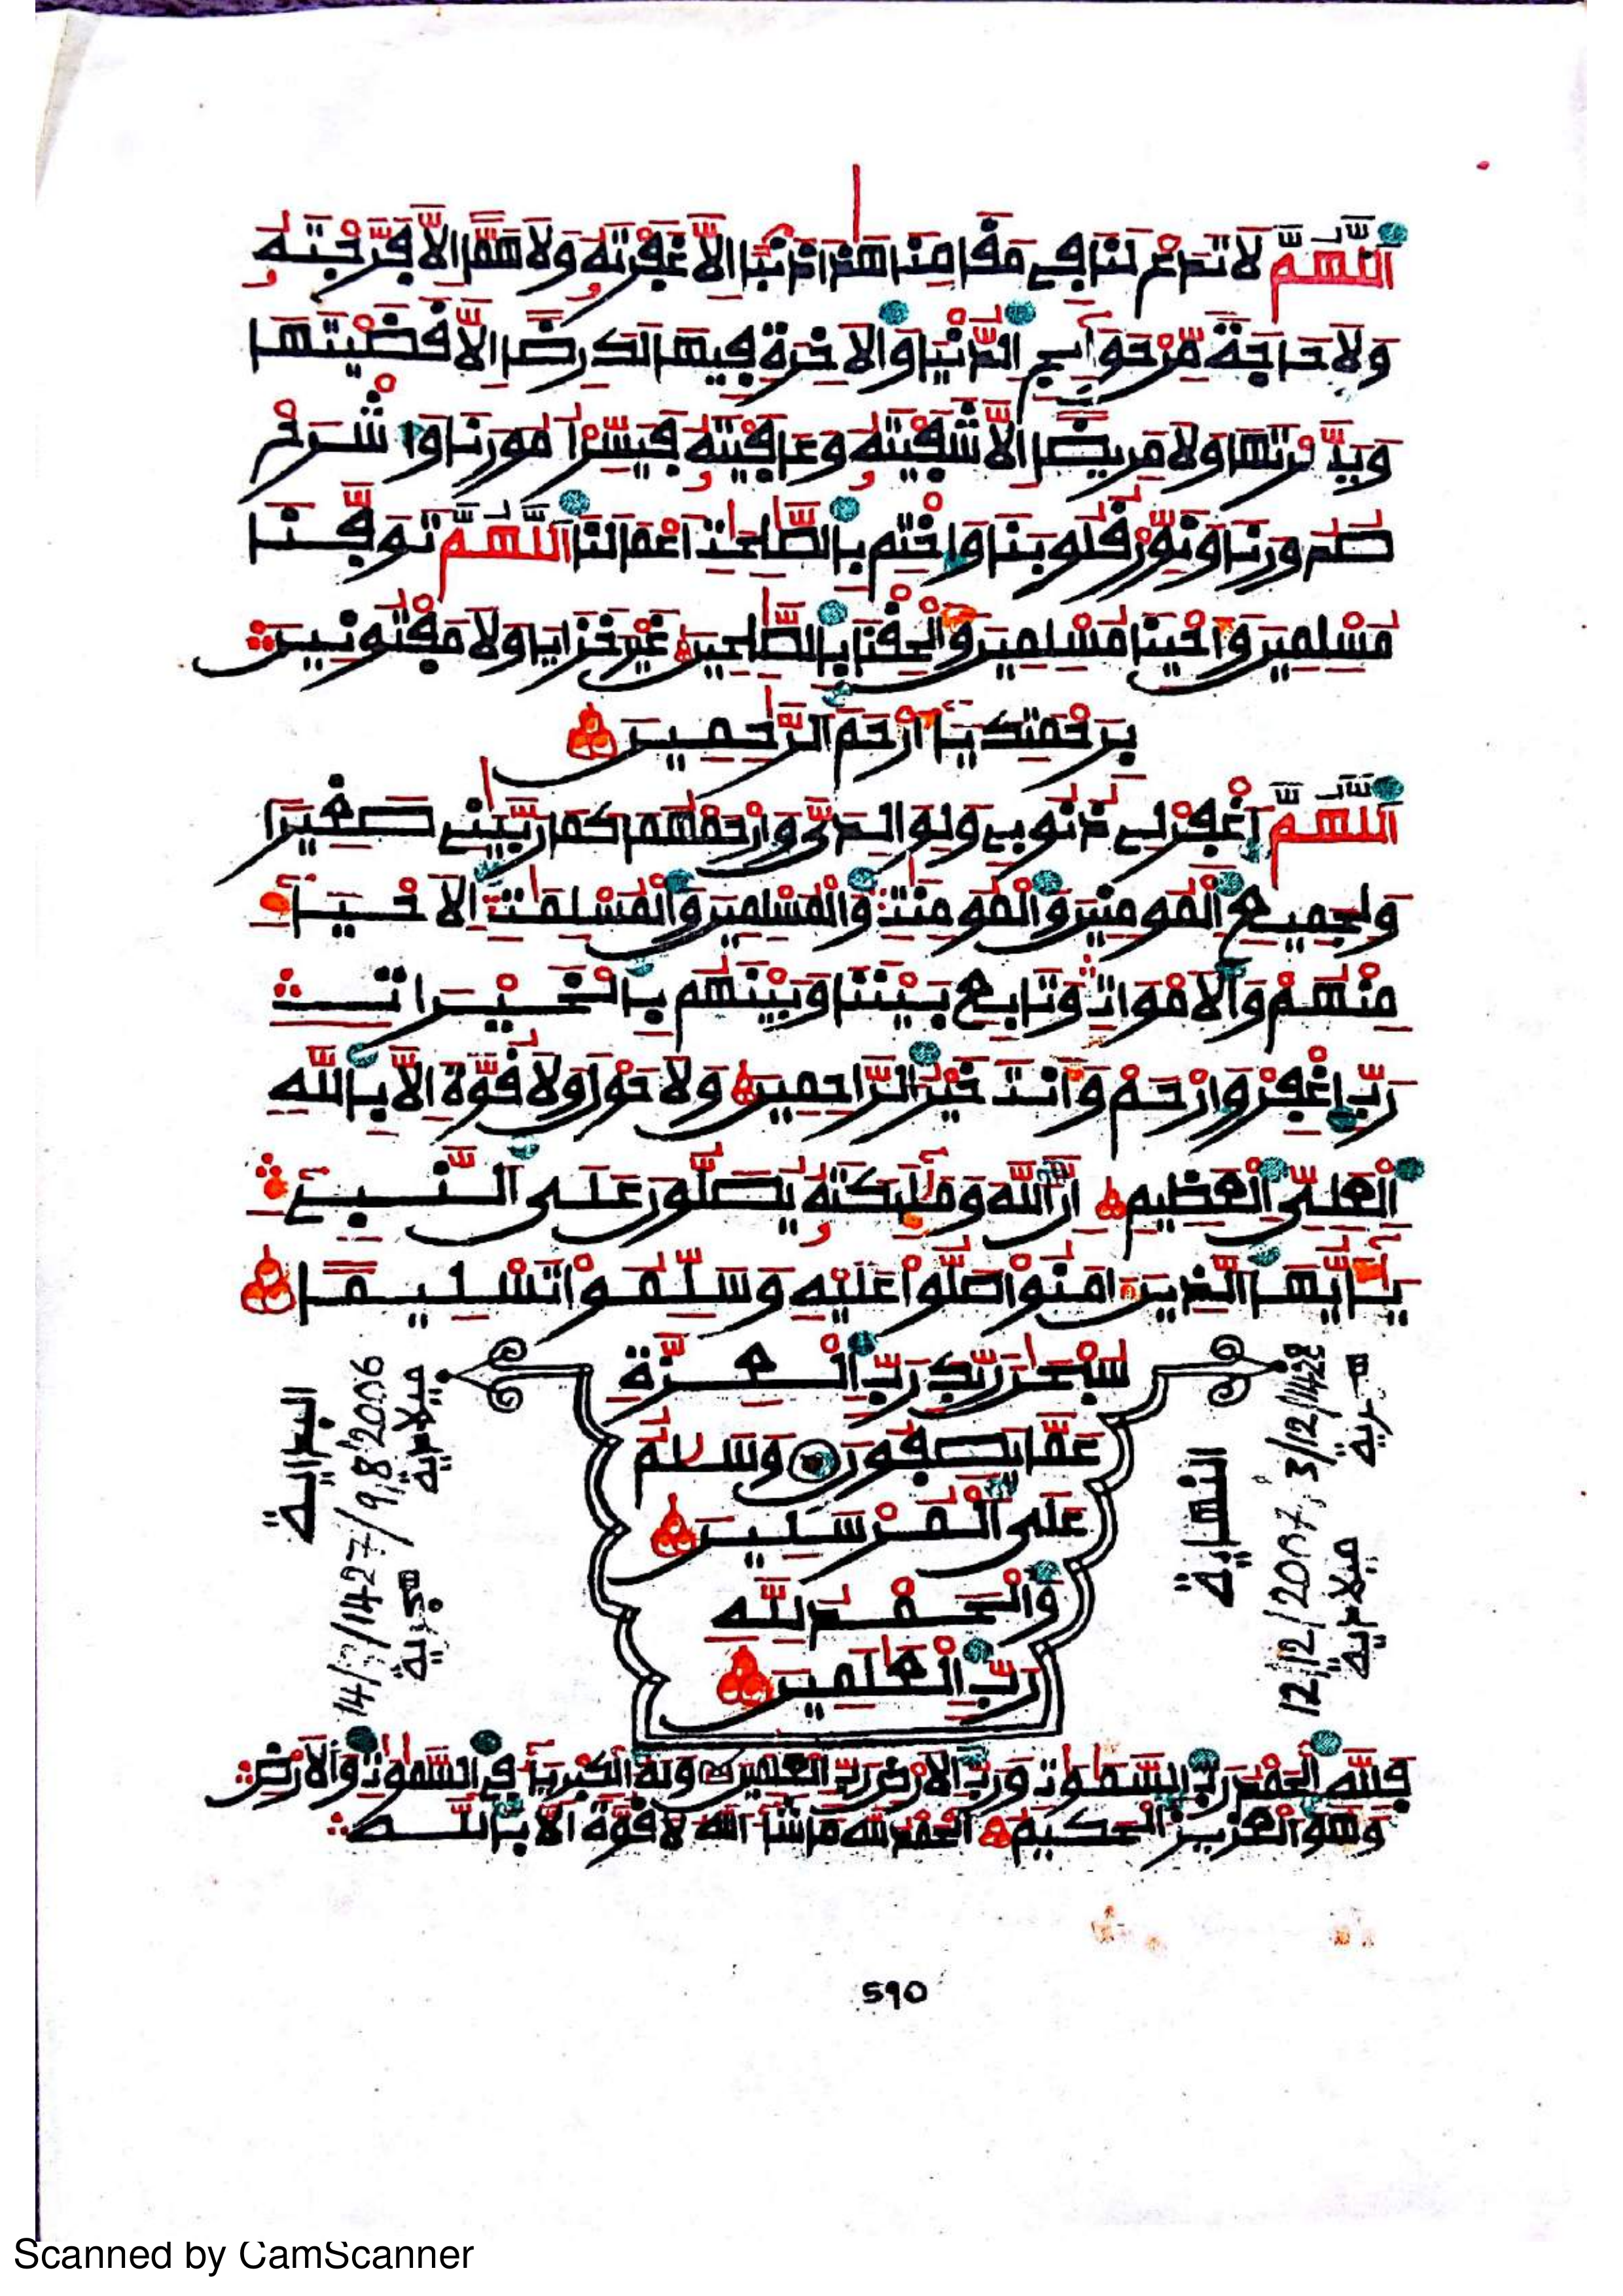 اَللَّهُمَّ لَا تَدَعْ لَنَا فِي مَقَامِنَا هَذَا ذَنْبًا إِلَّا غَفَرْتَهُ وَلَا هَمًّا إِلَّا فَرَّجْتَهُ
وَلَا حَاجَةً مِّنْ حَوَآئِجِ الدُّنْيَا وَالْآخِرَةِ فِيهَا لَكَ رِضًا إِلَّا قَضَيْتَهَا
وَيَسَّرْتَهَا وَلَا مَرِيضًا إِلَّا شَفَيْتَهُ وَعَافَيْتَهُ فَيَسِّرْ أُمُورَنَا وَاشْرَحْ
صُدُورَنَا وَنَوِّرْ قُلُوبَنَا وَاخْتِمْ بِالصَّلِحَتِ أَعْمَالَنَا اَللَّهُمَّ تَوَفَّنَا
مُسْلِمِينَ وَأَحْيِنَا مُسْلِمِينَ وَأَلْحِقْنَا بِالصَّلِحِينَ غَيْرَ خَزَايَا وَلَا مَفْتُونِينَ
بِرَحْمَتِكَ يَا أَرْحَمَ الرَّحِمِينَ
اَللَّهُمَّ اغْفِرْ لِي ذُنُوبِي وَلِوَالِدَيَّ وَارْحَمْهُمَا كَمَا رَبَّيَنِي صَغِيرًا
وَلِجَمِيعِ الْمُومِنِينَ وَالْمُومِنَتِ وَالْمُسْلِمِينَ وَالْمُسْلِمَتِ الْأَحْيَآءِ
مِنْهُمْ وَالْأَمْوَاتِ وَتَابِعْ بَيْنَنَا وَبَيْنَهُم بِالْخَيْرَاتِ
رَبِّ اغْفِرْ وَارْحَمْ وَأَنتَ خَيْرُ الرَّاحِمِينَ وَلَا حَوْلَ وَلَا قُوَّةَ إِلَّا بِاللَّهِ
الْعَلِيِّ الْعَظِيمِ إِنَّ اللَّهَ وَمَلَئِكَتَهُ يُصَلُّونَ عَلَى النَّبِيءِ
يَا أَيُّهَا الَّذِينَ ءَامَنُوا صَلُّوا عَلَيْهِ وَسَلِّمُوا تَسْلِيمًا
سُبْحَنَ رَبِّكَ رَبِّ الْعِزَّةِ
عَمَّا يَصِفُونَ وَسَلَمٌ
عَلَى الْمُرْسَلِينَ
وَالْحَمْدُ لِلَّهِ
رَبِّ الْعَلَمِينَ
النهاية
12/12/2007, 3/12/1428
ميلادية هجرية
البداية
14/7/1427/9,8,2006
هجرية / ميلادية
فَلِلَّهِ الْحَمْدُ رَبِّ السَّمَاوَاتِ وَرَبِّ الْأَرْضِ رَبِّ الْعَلَمِينَ وَلَهُ الْكِبْرِيَآءُ فِي السَّمَاوَاتِ وَالْأَرْضِ
وَهُوَ الْعَزِيزُ الْحَكِيمُ الْحَمْدُ لِلَّهِ مَا شَآءَ اللَّهُ لَا قُوَّةَ إِلَّا بِاللَّهِ
590
Scanned by CamScanner